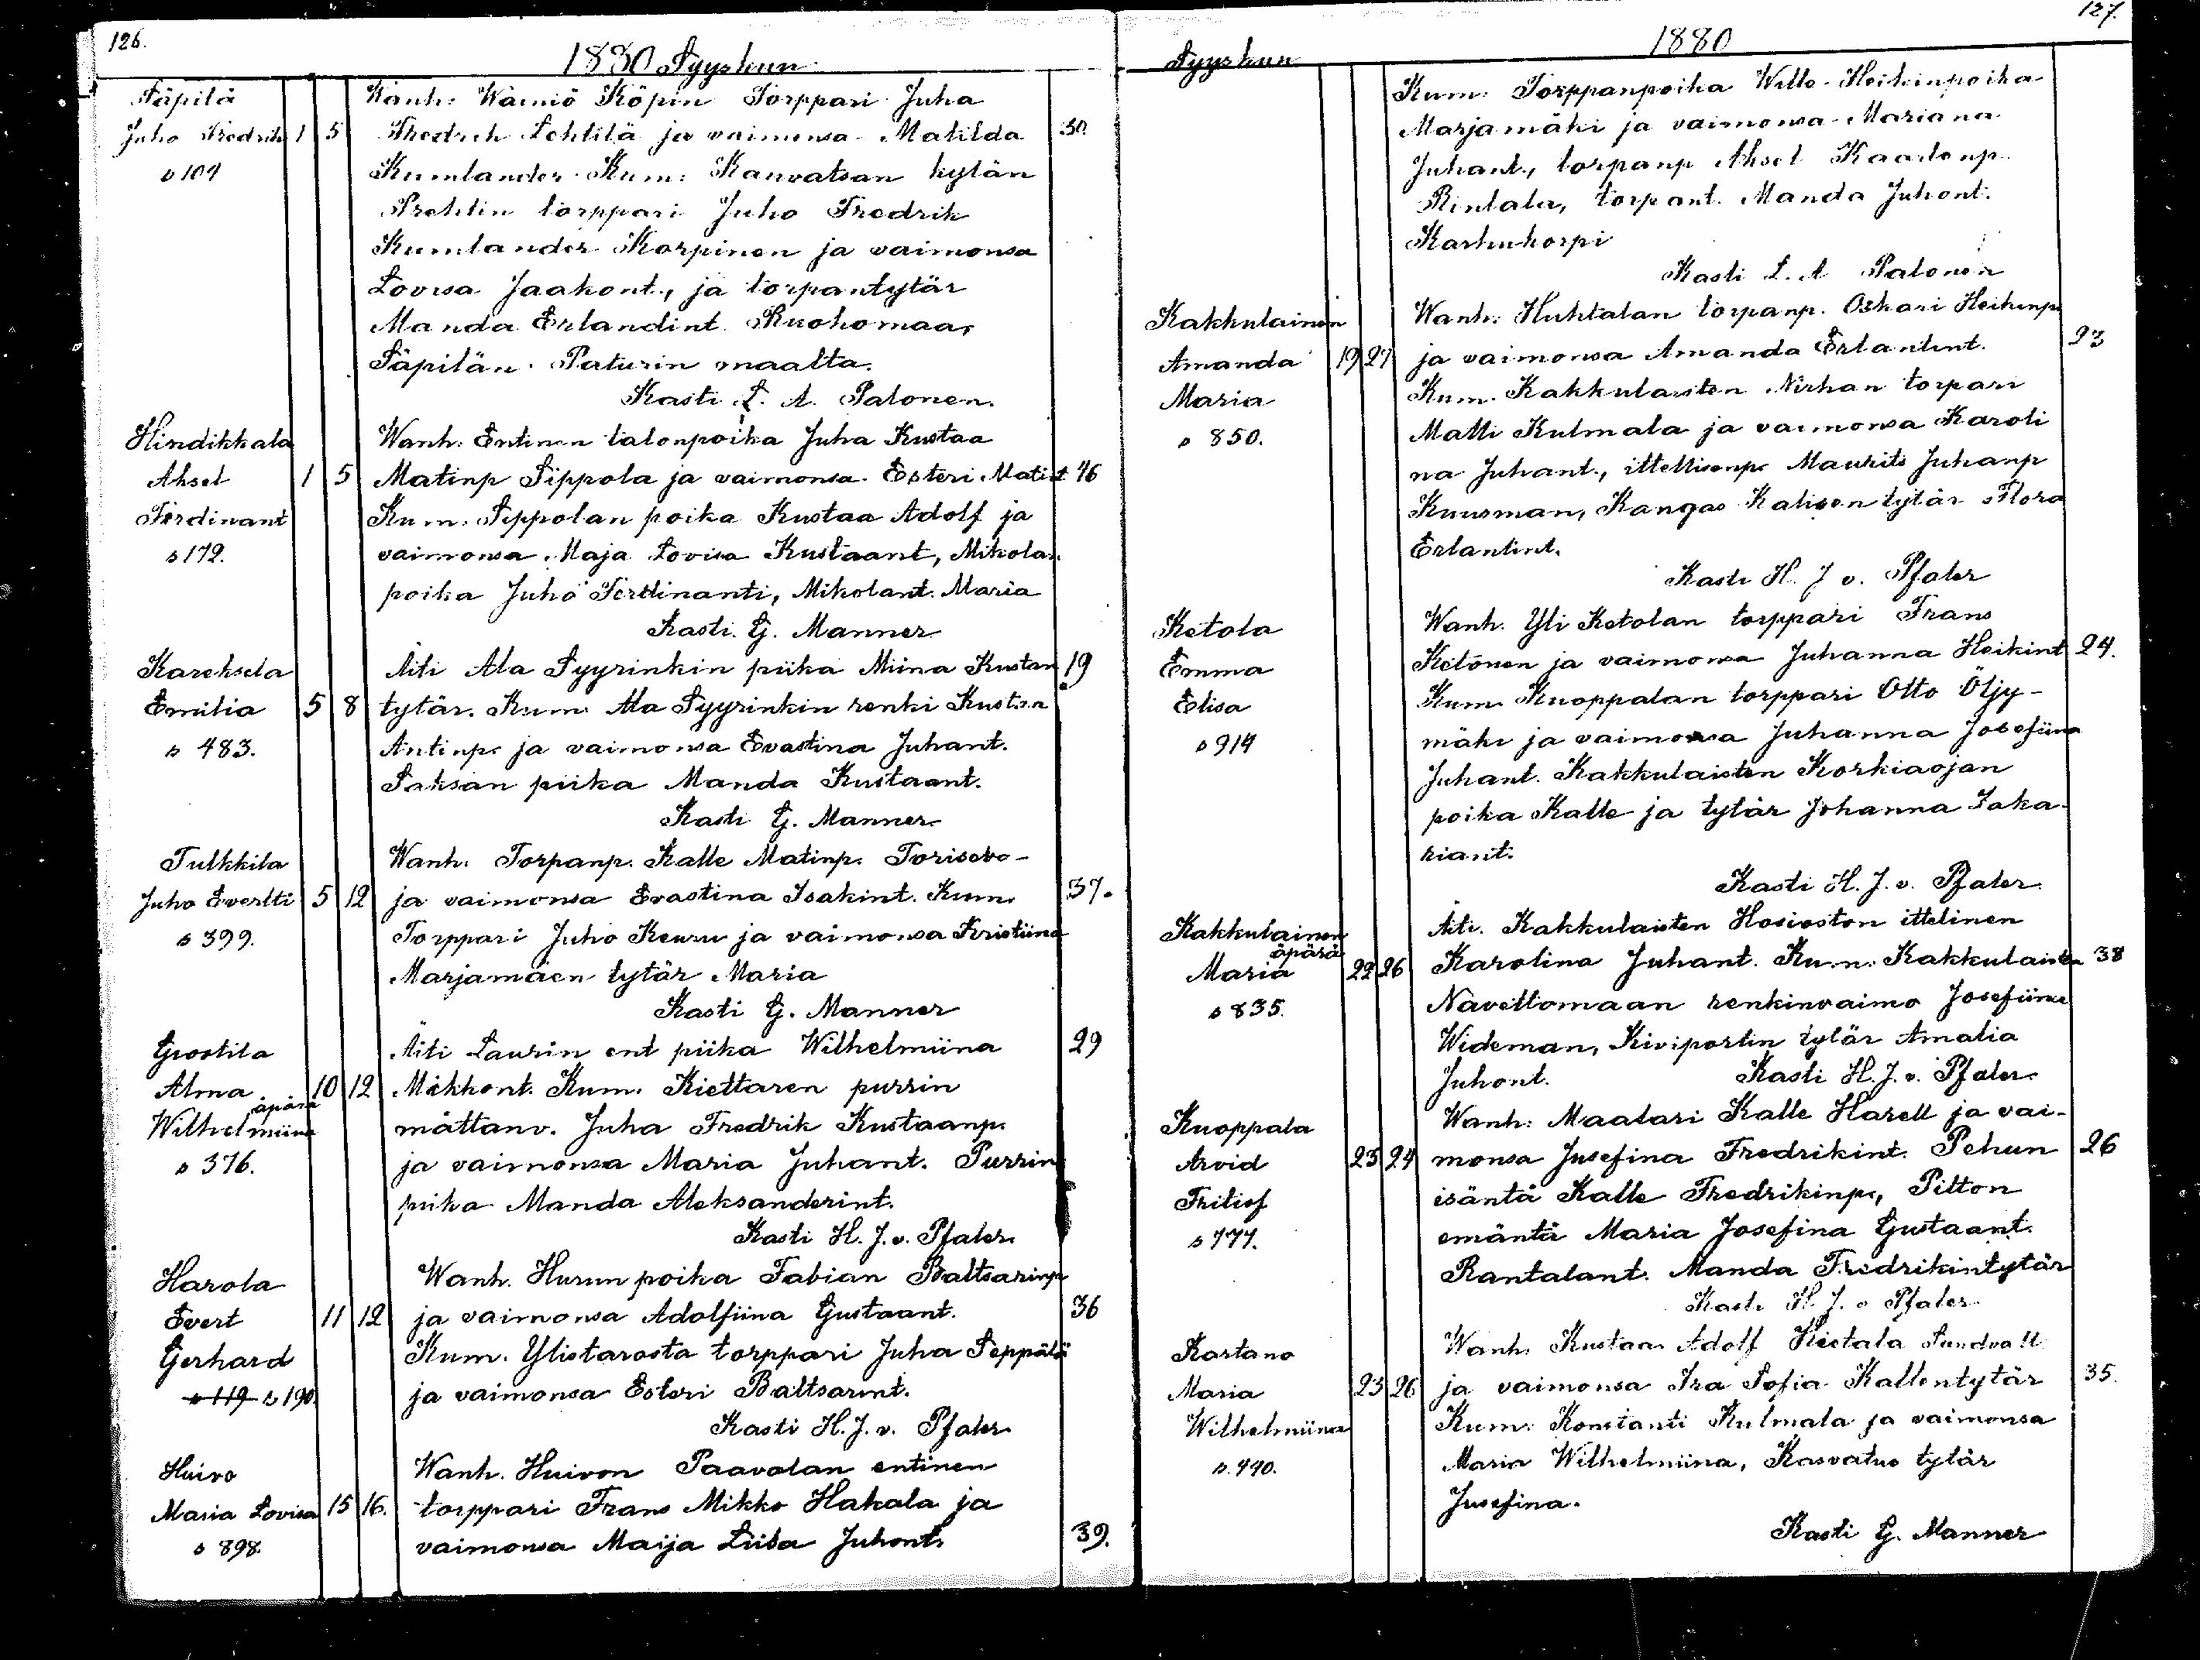 126.
1880 Syyskun
Säpilä
Juho Fredrik 1 5
s 104
Wanh: Wainiö Köpin Torppari Juha
Fredrik Lehtilä ja vaimonsa Matilda 30.
Kumlander. Kum: Kauvatsan kylän
Prehtin torppari Juho Fredrik
Kumlander Korpinen ja vaimonsa
Lovisa Jaakont., ja torpantytär
Manda Erlandint. Ruohomaa,
Säpilän Paturin maalta.
Kasti L. A. Palonen.
Hindikkala
Aksel 1 5
Ferdinant
s 172.
Wanh: Entinen talonpoika Juha Kustaa
Matinp Sippola ja vaimonsa Esteri Matint 46
Kum: Seppolan poika Kustaa Adolf ja
vaimonsa Maja Lovisa Kustaant, Mikolan
poika Juho Ferdinanti, Mikolant. Maria
Kasti G. Manner
Kareksela
Emilia 5 8
s 483.
Äiti Ala Syyrinkin piika Miina Kustan 19
tytär. Kum. Ala Syyrinkin renki Kustaa
Antinp. ja vaimonsa Evastina Juhant.
Saksan piika Manda Kustaant.
Kasti G. Manner
Tulkkila
Juho Evertti 5 12
s 399.
Wanh: Torpanp. Kalle Matinp. Torisevo-
ja vaimonsa Evastina Isakint. Kum. 37.
Torppari Juho Keuru ja vaimonsa Kristiina
Marjamäen tytär Maria
Kasti G. Manner
Groslila
Alma 10 12
äpärä
Wilhelmiina
s 376.
Äiti Laurin ent piika Wilhelmiina 29
Mikkont. Kum. Kiettaren purrin
mättanv. Juha Fredrik Kustaanp.
ja vaimonsa Maria Juhant. Purrin
piika Manda Aleksanderint.
Kasti H. J. v. Pfaler.
Harola
Evert 11 12
Gerhard
s 119 s 190.
Wanh. Hurun poika Fabian Baltsarinp
ja vaimonsa Adolfiina Gustaant. 36
Kum. Ylistarosta torppari Juha Seppälä
ja vaimonsa Esteri Baltsarint.
Kasti H. J. v. Pfaler
Huivo
Maria Lovisa 15 16.
s 898.
Wanh. Huivon Paavolan entinen
torppari Frans Mikko Hakala ja
vaimonsa Maija Liisa Juhont. 39.
127.
Syyskun 1880
Kum: Torppanpoika Wille Heikinpoika
Marjamäki ja vaimonsa Mariana
Juhant., torpanp Aksel Kaarlonp.
Rintala, torpant. Manda Juhont.
Karhukorpi
Kasti L. A Palonen
Kakkulainen
Amanda 19 27
Maria
s 850.
Wanh: Huhtalan torpanp. Oskari Heikinp
ja vaimonsa Amanda Erlantint. 23
Kum. Kakkulaisten Nirhan torpari
Matti Kulmala ja vaimonsa Karoli
na Juhant., ittellisenp. Maurits Juhanp
Kuusman, Kangas Kalisen tytär Flora
Erlantint.
Kasti H. J v. Pfaler
Ketola
Emma
Elisa
s 914
Wanh. Yli Ketolan torppari Frans
Ketonen ja vaimonsa Juhanna Heikint 24.
Kum. Kuoppalan torppari Otto Öljy-
mäki ja vaimonsa Juhanna Josefiina
Juhant. Kakkulaisten Korkiaojan
poika Kalle ja tytär Johanna Saka-
riant.
Kasti H. J. v. Pfaler.
Kakkulainen
äpärä
Maria 22 26
s 835.
Äiti. Kakkulaisten Hosioston ittelinen
Karolina Juhant. Kum. Kakkulaisten 38
Navettomaan renkinvaimo Josefiina
Wideman, Kiviportin tytär Amalia
Juhont. Kasti H. J. v. Pfaler.
Kuoppala
Arvid 23 24
Fritiof
s 777.
Wanh: Maalari Kalle Harell ja vai-
monsa Jusefina Fredrikint. Pehun 26
isäntä Kalle Fredrikinp., Pilton
emäntä Maria Josefina Gustaant.
Rantalant. Manda Fredrikintytär
Kasti H. J. v Pfaler
Kartano
Maria 23 26
Wilhelmiina
s. 440.
Wanh. Kustaa Adolf Kietala Sundvall
ja vaimonsa Ira Sofia Kallentytär 35.
Kum: Konstanti Kulmala ja vaimonsa
Maria Wilhelmiina, Kasvatus tytär
Jusefina.
Kasti G. Manner